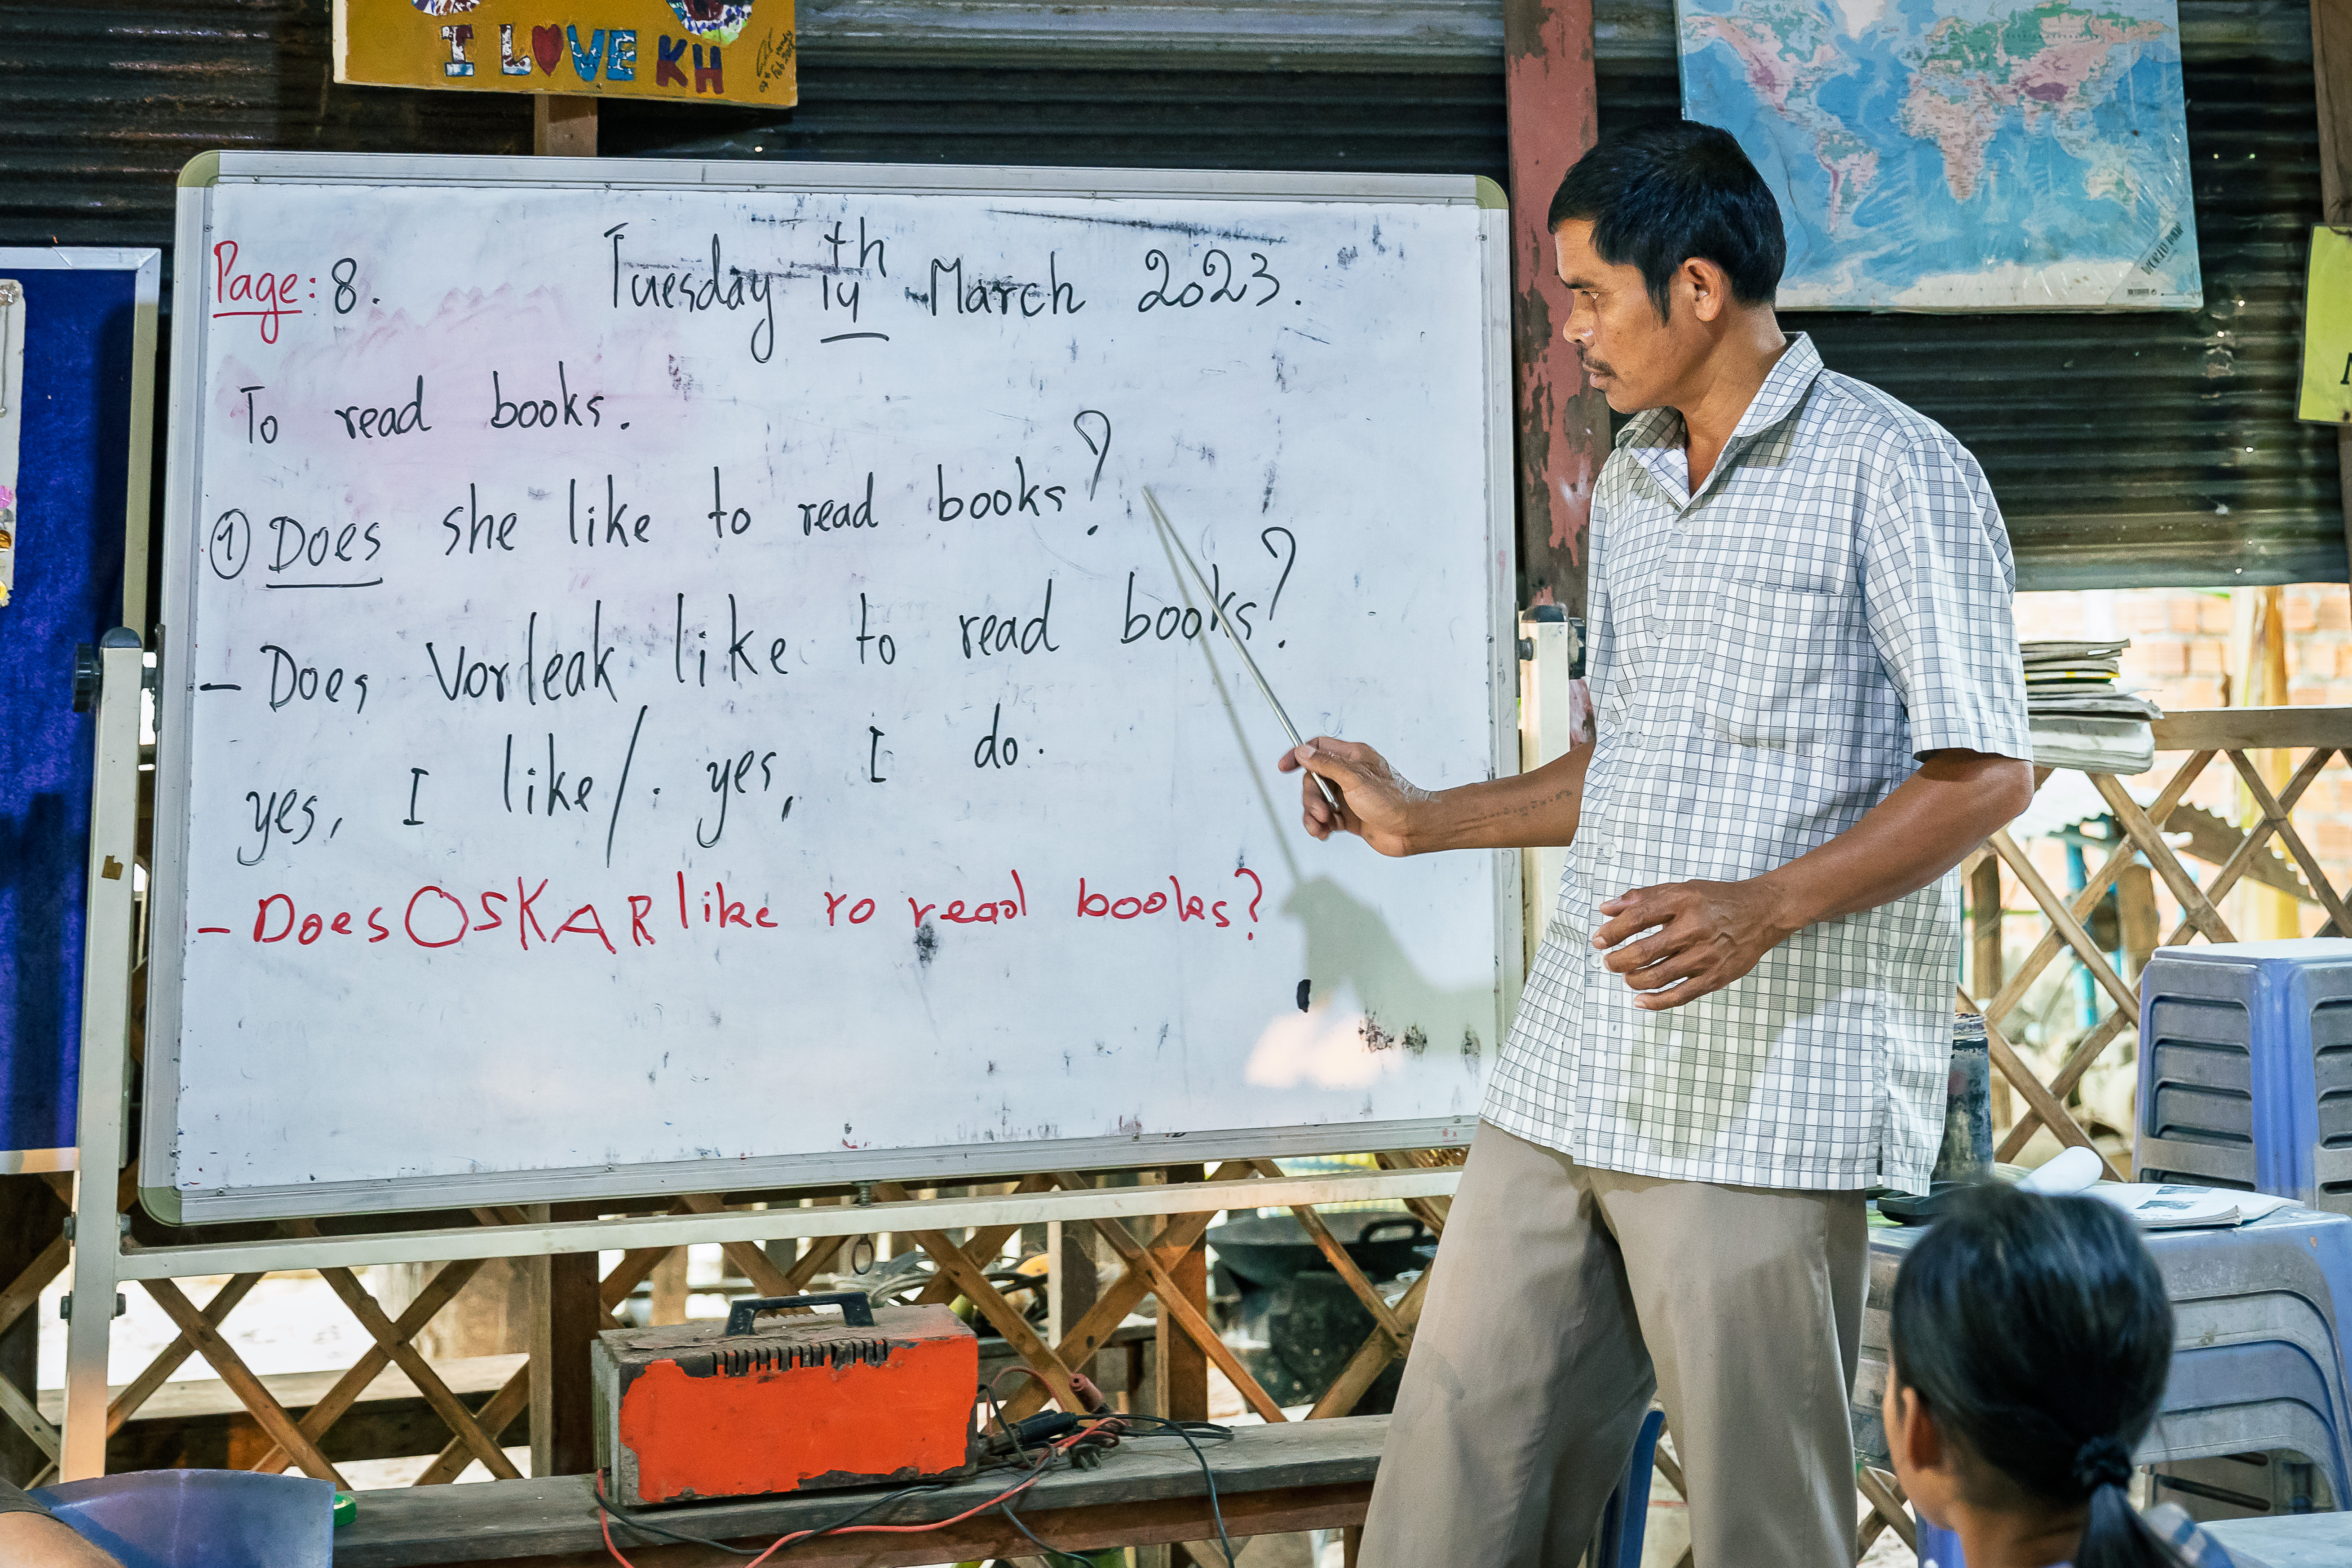 I LOVE KH
WORLD MAP
Page: 8.
Tuesday 14th March 2023.
To read books.
① Does she like to read books?
- Does Vorleak like to read books?
yes, I like/. yes, I do.
- Does OSKAR like ro read books?